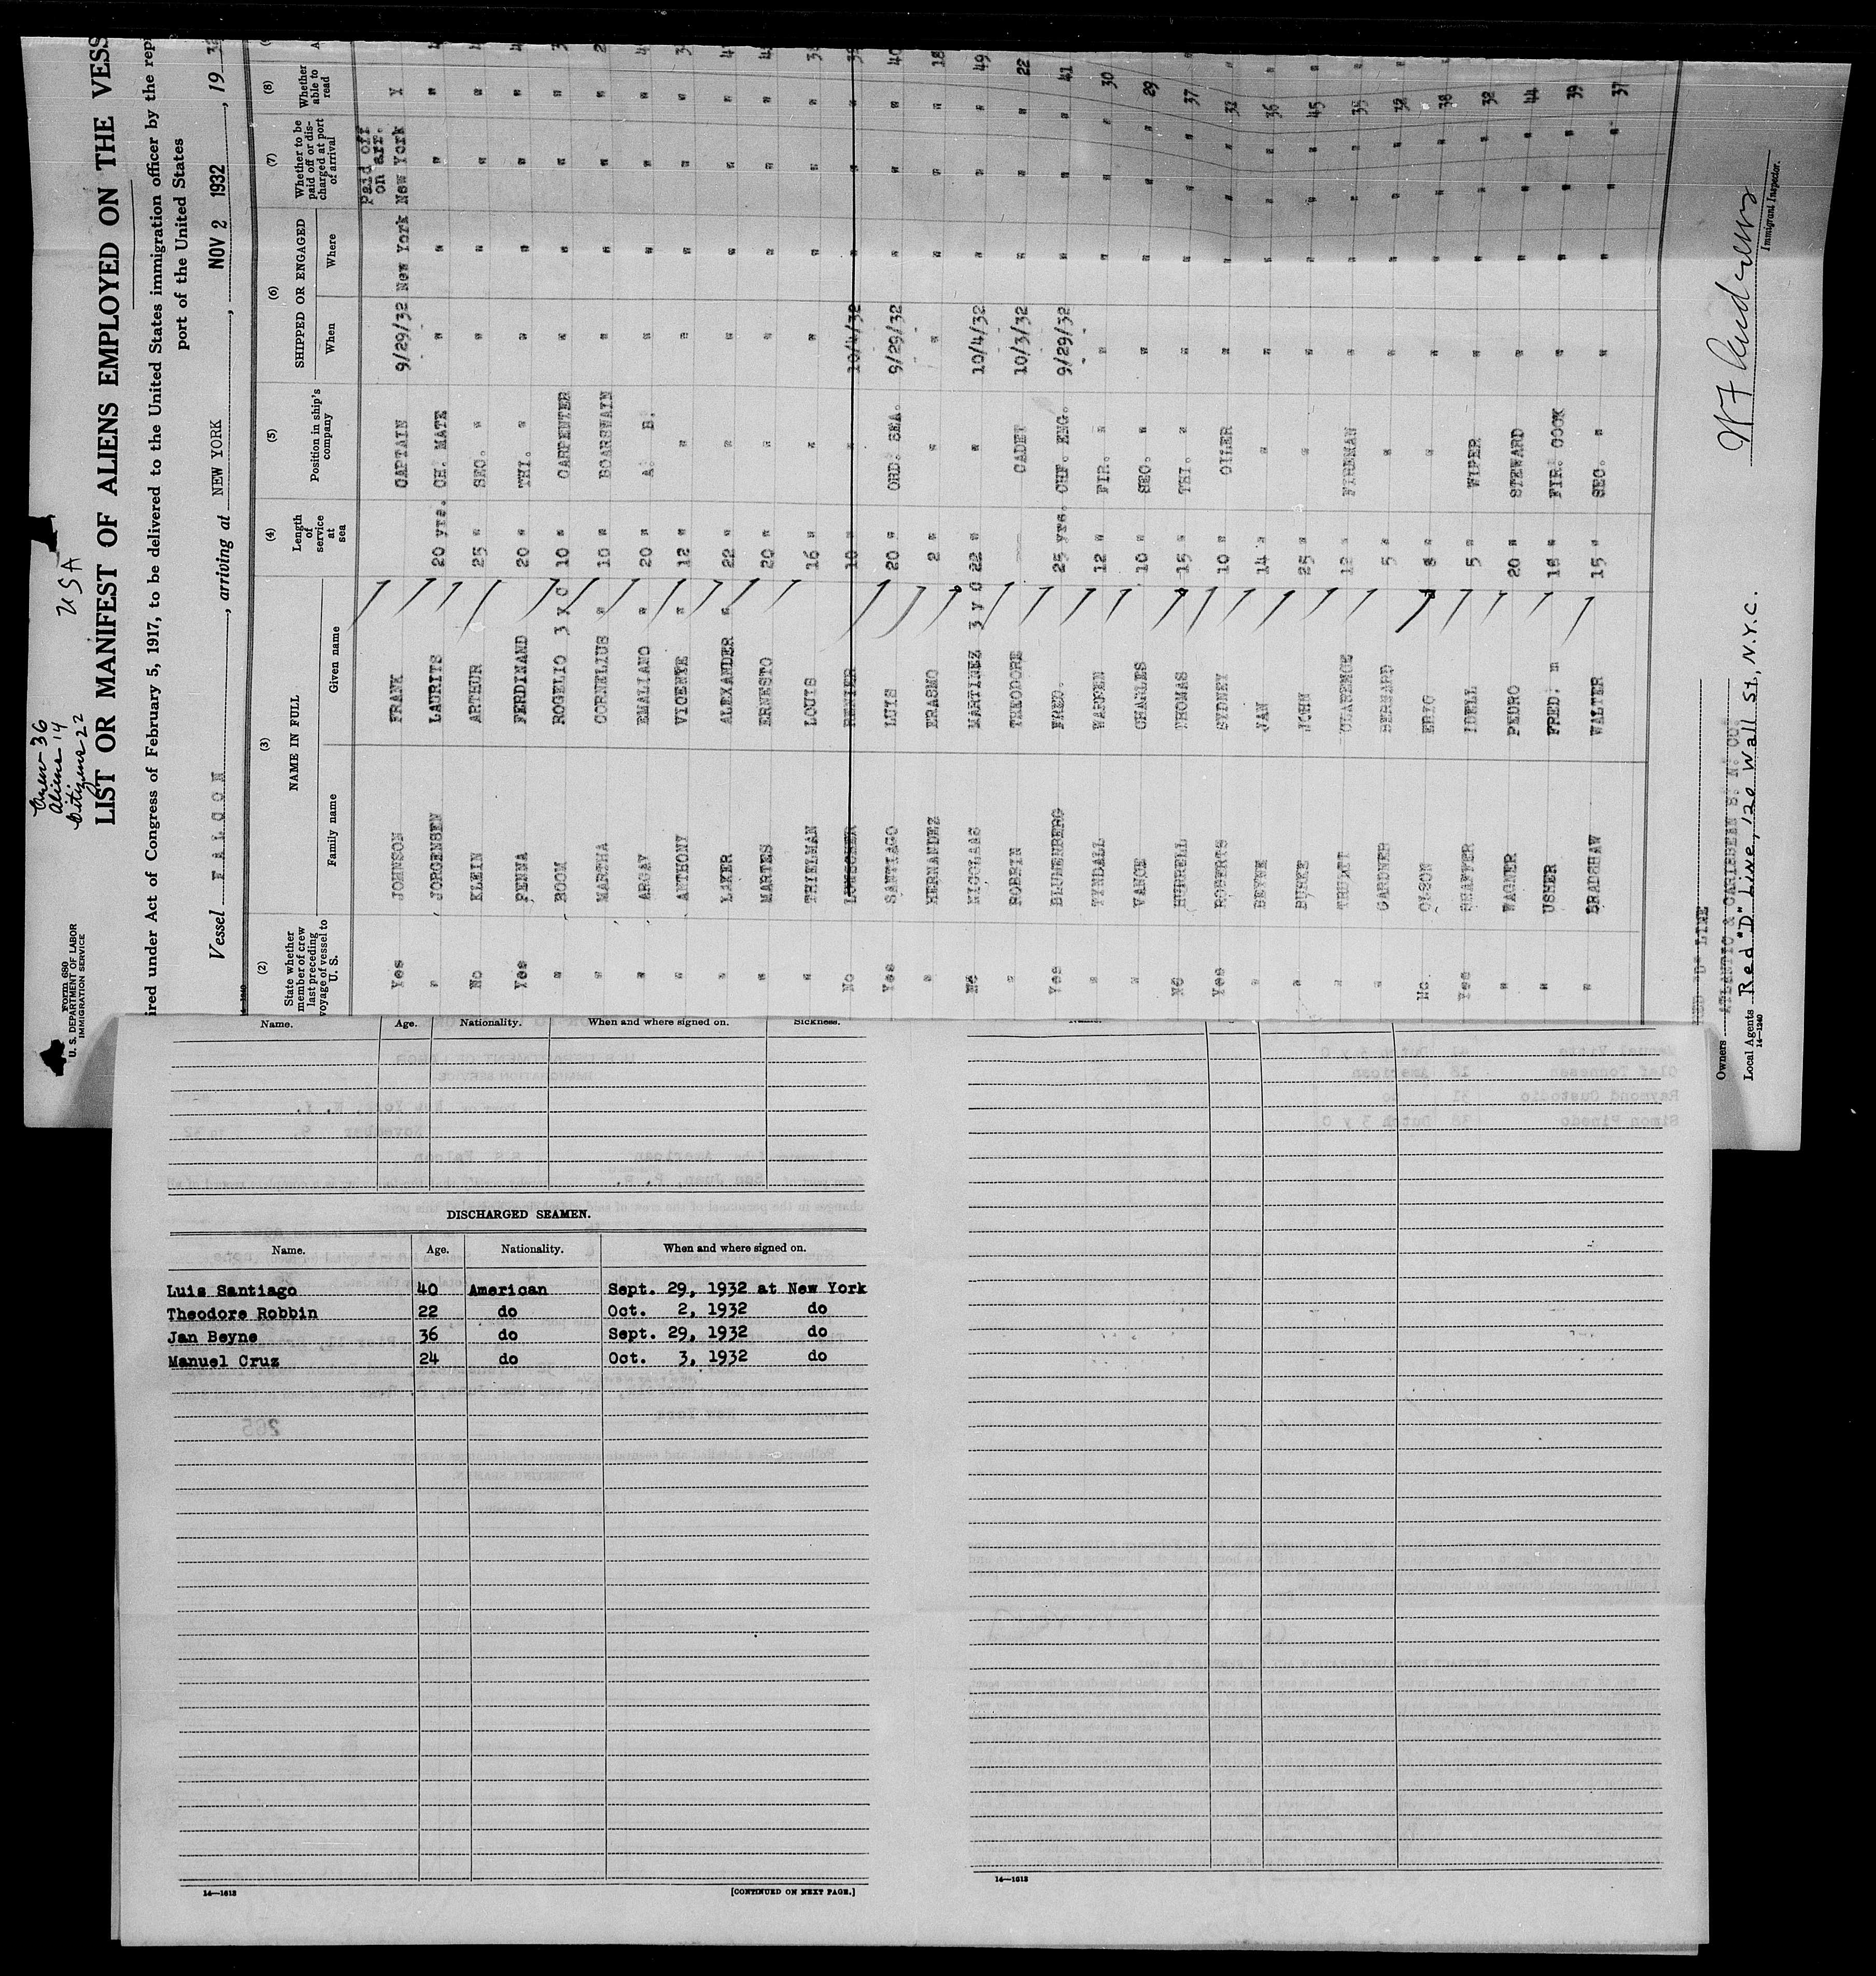 Crew 36
Aliens 14
Citizens 22
USA
Form 680
U. S. DEPARTMENT OF LABOR
IMMIGRATION SERVICE
LIST OR MANIFEST OF ALIENS EMPLOYED ON THE VESS
ired under Act of Congress of February 5, 1917, to be delivered to the United States immigration officer by the rep
port of the United States
Vessel FALCON, arriving at NEW YORK, NOV 2 1932, 19 32
(2) (3) (4) (5) (6) (7) (8)
State whether member of crew last preceding voyage of vessel to U. S. NAME IN FULL Family name Given name Length of service at sea Position in ship's company SHIPPED OR ENGAGED When Where Whether to be paid off or discharged at port of arrival Whether able to read
Paid off on arr.
Yes JOHNSON FRANK CAPTAIN 9/29/32 New York New York Y
" JORGENSEN LAURITS 20 yrs. CH. MATE " " " "
No KLEIN ARTHUR 25 " SEC. " " " " "
Yes PENNA FERDINAND 20 " THI. " " " " "
" BOOM ROGELIO 3 X O 10 " CARPENTER " " " "
" MARTHA CORNELIUS " 10 " BOARSWAIN " " " "
" ARGAV EMALIANO " 20 " A. B. " " " "
" ANTHONY VICENTE " 12 " " " " " "
" LAKER ALEXANDER " 22 " " " " " "
" MARTES ERNESTO 20 " " " " " "
" THIELMAN LOUIS 16 " " " " " "
No RENIER 10 " " 10/4/32 " " "
Yes SANTIAGO LUIS 20 " ORD. SEA. 9/29/32 " " " 40
" HERNANDEZ ERASMO 2 " " " " " " 18
No NICOLAAS MARTINEZ 3 y O 22 " " 10/4/32 " " " 49
" ROBBIN THEODORE CADET 10/3/32 " " " 22
Yes BLUMENBERG FRED. 25 yrs. CHF. ENG. 9/29/32 " " " 41
" TYNDALL WARREN 12 " FIR. " " " " " 30
" VANCE CHARLES 10 " SEC. " " " " " 29
No HURRELL THOMAS 15 " THI. " " " " " 37
Yes ROBERTS SYDNEY 10 " OILER " " " " 32
" BEYNE JAN 14 " " " " " " 36
" BURKE JOHN 25 " " " " " " 45
" TRUITT CLARENCE 12 " FIREMAN " " " " 35
" GARDNER BERNARD 5 " " " " " " 32
No OLSON ERIC 8 " " " " " " 38
Yes SHAFFER IDELL 5 " WIPER " " " " 32
" WAGNER PEDRO 20 " STEWARD " " " " 44
" USHER FRED. m 18 " FIR. COOK " " " " 39
" BRADSHAW WALTER 15 " SEC. " " " " " 37
W F Andrews
Immigrant Inspector.
RED "D" LINE
Owners ATLANTIC & CARIBBEAN S. N. CO.
Local Agents Red "D" Line, 120 Wall St., N.Y.C.
14—1240
Name. Age. Nationality. When and where signed on. Sickness.
DISCHARGED SEAMEN.
Name. Age. Nationality. When and where signed on.
Luis Santiago 40 American Sept. 29, 1932 at New York
Theodore Robbin 22 do Oct. 2, 1932 do
Jan Beyne 36 do Sept. 29, 1932 do
Manuel Cruz 24 do Oct. 3, 1932 do
14—1613
[CONTINUED ON NEXT PAGE.]
14—1613